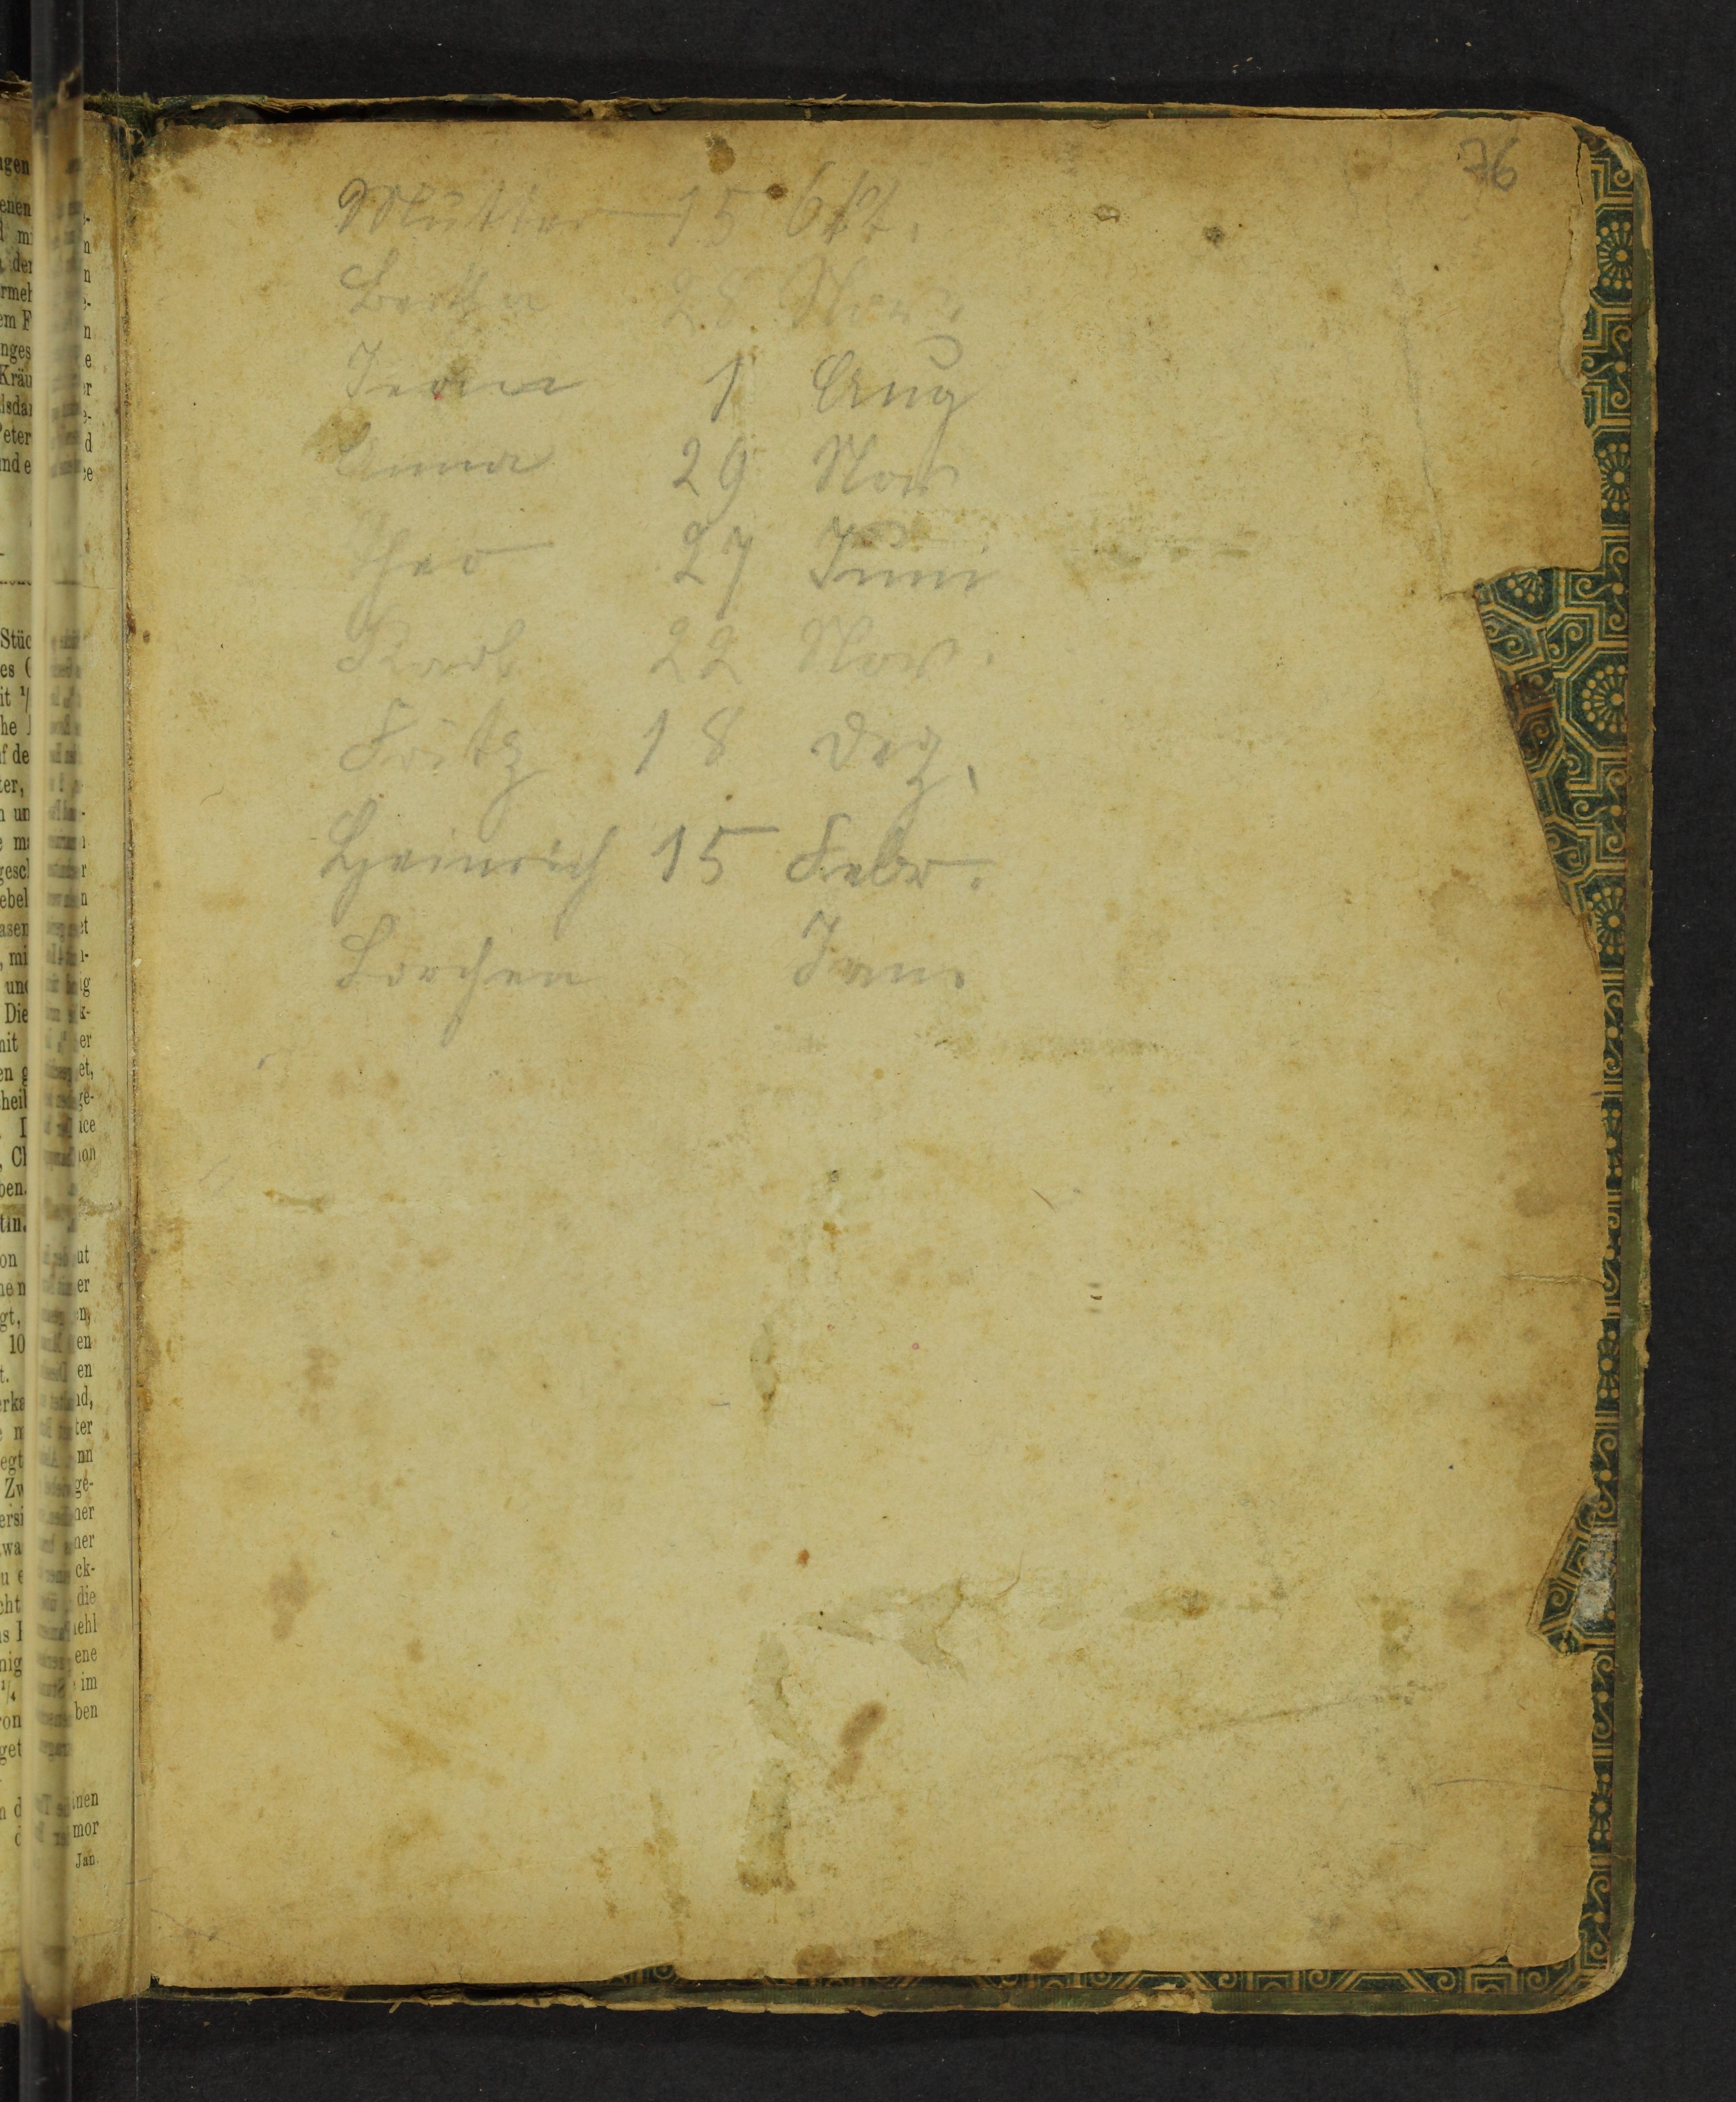 76
Mutter 15 Okt.
Bertha 25 Nov.
Irma 1 Aug
Anna 29 Nov
Theo 27 Juni
Karl 22 Nov.
Fritz 18 Dez.
Heinrich 15 Febr.
Lorchen Jan.